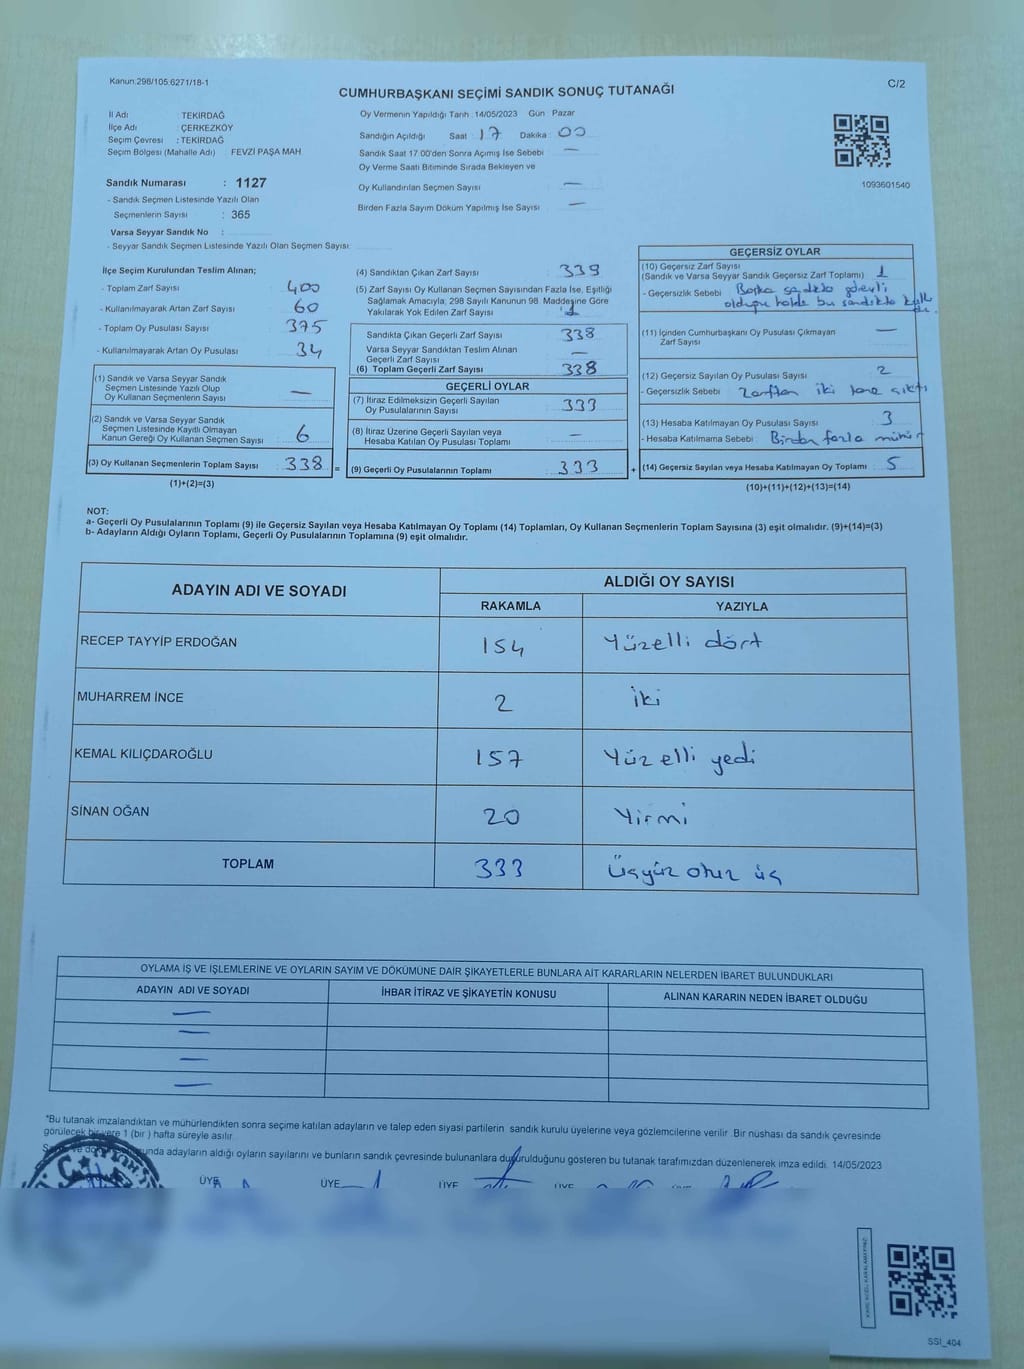 Kanun:298/105:6271/18-1
C/2
CUMHURBAŞKANI SEÇİMİ SANDIK SONUÇ TUTANAĞI
İl Adı TEKİRDAĞ
İlçe Adı : ÇERKEZKÖY
Seçim Çevresi : TEKİRDAĞ
Seçim Bölgesi (Mahalle Adı) : FEVZİ PAŞA MAH
Sandık Numarası : 1127
- Sandık Seçmen Listesinde Yazılı Olan
Seçmenlerin Sayısı : 365
Varsa Seyyar Sandık No :
- Seyyar Sandık Seçmen Listesinde Yazılı Olan Seçmen Sayısı:
Oy Vermenin Yapıldığı Tarih : 14/05/2023 Gün : Pazar
Sandığın Açıldığı Saat : 17 Dakika : 00
Sandık Saat 17.00'den Sonra Açımış İse Sebebi : —
Oy Verme Saati Bitiminde Sırada Bekleyen ve
Oy Kullandırılan Seçmen Sayısı : —
Birden Fazla Sayım Döküm Yapılmış İse Sayısı : —
1093601540
İlçe Seçim Kurulundan Teslim Alınan;
- Toplam Zarf Sayısı : 400
- Kullanılmayarak Artan Zarf Sayısı : 60
- Toplam Oy Pusulası Sayısı : 375
- Kullanılmayarak Artan Oy Pusulası : 34
(1) Sandık ve Varsa Seyyar Sandık
Seçmen Listesinde Yazılı Olup
Oy Kullanan Seçmenlerin Sayısı : —
(2) Sandık ve Varsa Seyyar Sandık
Seçmen Listesinde Kayıtlı Olmayan
Kanun Gereği Oy Kullanan Seçmen Sayısı : 6
(3) Oy Kullanan Seçmenlerin Toplam Sayısı : 338 =
(1)+(2)=(3)
(4) Sandıktan Çıkan Zarf Sayısı : 339
(5) Zarf Sayısı Oy Kullanan Seçmen Sayısından Fazla İse, Eşitliği
Sağlamak Amacıyla, 298 Sayılı Kanunun 98. Maddesine Göre
Yakılarak Yok Edilen Zarf Sayısı : 1
Sandıkta Çıkan Geçerli Zarf Sayısı : 338
Varsa Seyyar Sandıktan Teslim Alınan
Geçerli Zarf Sayısı : —
(6) Toplam Geçerli Zarf Sayısı : 338
GEÇERLİ OYLAR
(7) İtiraz Edilmeksizin Geçerli Sayılan
Oy Pusulalarının Sayısı : 333
(8) İtiraz Üzerine Geçerli Sayılan veya
Hesaba Katılan Oy Pusulası Toplamı : —
(9) Geçerli Oy Pusulalarının Toplamı : 333 +
GEÇERSİZ OYLAR
(10) Geçersiz Zarf Sayısı
(Sandık ve Varsa Seyyar Sandık Geçersiz Zarf Toplamı) : 1
- Geçersizlik Sebebi : Başka sandıkta görevli
olduğu halde bu sandıkta
(11) İçinden Cumhurbaşkanı Oy Pusulası Çıkmayan
Zarf Sayısı : —
(12) Geçersiz Sayılan Oy Pusulası Sayısı : 2
- Geçersizlik Sebebi : Zarftan iki tane çıktı
(13) Hesaba Katılmayan Oy Pusulası Sayısı : 3
- Hesaba Katılmama Sebebi : Birden fazla mühür
(14) Geçersiz Sayılan veya Hesaba Katılmayan Oy Toplamı : 5
(10)+(11)+(12)+(13)=(14)
NOT:
a- Geçerli Oy Pusulalarının Toplamı (9) ile Geçersiz Sayılan veya Hesaba Katılmayan Oy Toplamı (14) Toplamları, Oy Kullanan Seçmenlerin Toplam Sayısına (3) eşit olmalıdır. (9)+(14)=(3)
b- Adayların Aldığı Oyların Toplamı, Geçerli Oy Pusulalarının Toplamına (9) eşit olmalıdır.
ADAYIN ADI VE SOYADI ALDIĞI OY SAYISI
RAKAMLA YAZIYLA
RECEP TAYYİP ERDOĞAN 154 Yüzelli dört
MUHARREM İNCE 2 iki
KEMAL KILIÇDAROĞLU 157 Yüz elli yedi
SİNAN OĞAN 20 Yirmi
TOPLAM 333 Üçyüz otuz üç
OYLAMA İŞ VE İŞLEMLERİNE VE OYLARIN SAYIM VE DÖKÜMÜNE DAİR ŞİKAYETLERLE BUNLARA AİT KARARLARIN NELERDEN İBARET BULUNDUKLARI
ADAYIN ADI VE SOYADI İHBAR İTİRAZ VE ŞİKAYETİN KONUSU ALINAN KARARIN NEDEN İBARET OLDUĞU
—
—
—
—
*Bu tutanak imzalandıktan ve mühürlendikten sonra seçime katılan adayların ve talep eden siyasi partilerin sandık kurulu üyelerine veya gözlemcilerine verilir .Bir nüshası da sandık çevresinde
görülecek bir yere 1 (bir ) hafta süreyle asılır.
adayların aldığı oyların sayılarını ve bunların sandık çevresinde bulunanlara duyurulduğunu gösteren bu tutanak tarafımızdan düzenlenerek imza edildi. 14/05/2023
ÜYE ÜYE ÜYE ÜYE ÜYE
SSI_404